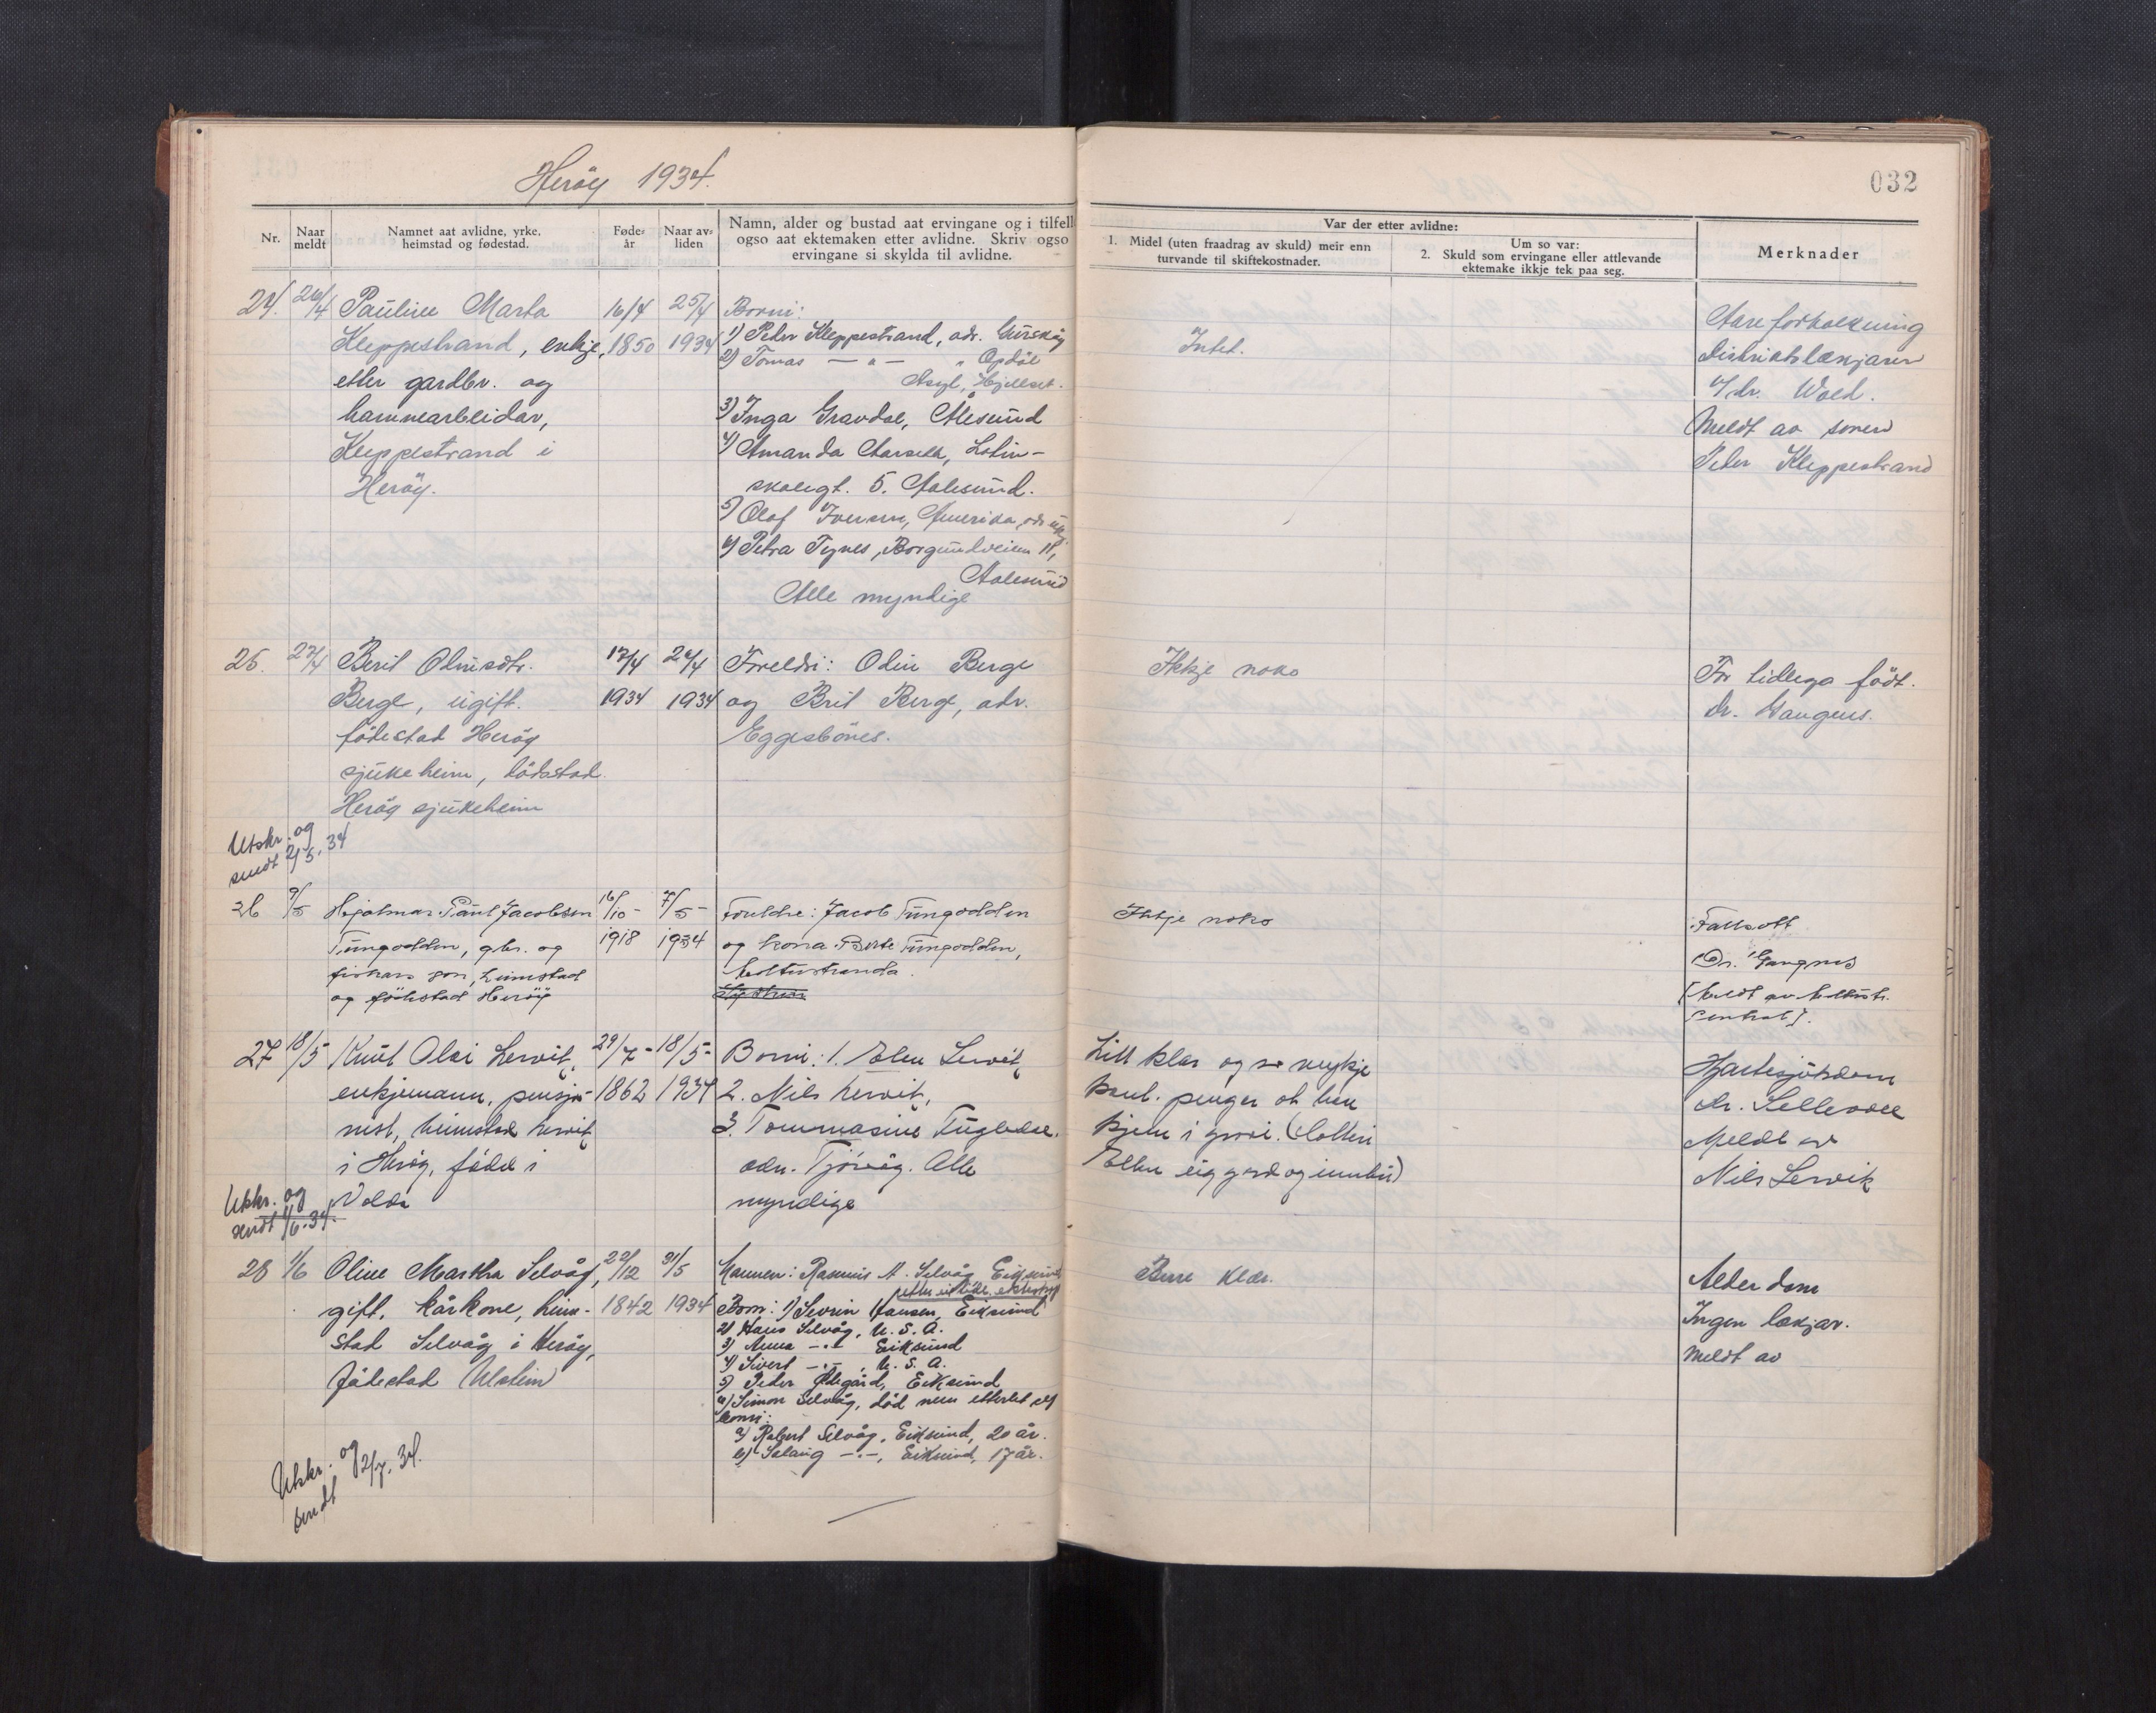 Herøy 1934.
032
Nr.
Naar meldt
Namnet aat avlidne, yrke, heimstad og fødestad.
Føde-år
Naar av-liden
Namn, alder og bustad aat ervingane og i tilfell
ogso aat ektemaken etter avlidne. Skriv ogso
ervingane si skylda til avlidne.
Var der etter avlidne:
1. Midel (uten fraadrag av skuld) meir enn turvande til skiftekostnader.
Um so var:
2. Skuld som ervingane eller attlevande ektemake ikkje tek paa seg.
Merknader
24. 26/4 Pauline Marta 16/4 25/4 Borni:
Kleppestrand, enkje, 1850 1934 1) Peder Kleppestrand, adr. Gurskøy
etter gardbr. og
hamnearbeidar,
Kleppestrand i
Herøy.
2) Tomas — " — " Opdøl
Asyl, Hjellset.
3) Inga Gravdal, Ålesund
4) Amanda Aarseth, Latin-
skolegt. 5. Aalesund.
5) Olaf Iversen, Amerika, adr
6) Petra Tynes, Borgundveien 11,
Aalesund
Alle myndige
Intet.
Aareforkalkning
Distriktslækjaren
v/dr. Wold.
Meldt av sonen
Peder Kleppestrand
25. 27/4 Berit Olinsdtr. 17/4 24/4 Foreldri: Odin Berge
Berge, ugift. 1934 1934 og Brit Berge, adr.
fødestad Herøy Eggesbønes.
sjukeheim, dødsstad
Herøy sjukeheim
Ikkje noko
For tidlega født.
Dr. Gangnes.
Utskr. og
sendt 2/5.34
26 9/5 Hjalmar Paul Jacobsen 16/10- 7/5- Foreldre: Jacob Tungodden
Tungodden, gbr. og 1918 1934 og kona Berte Tungodden,
fiskars son, heimstad
og födestad Heröy
Ikkje noko
Fallsott
Dr. Gangnes
27 18/5 Knut Olai Lervik, 29/7- 18/5- Borni: 1. Elen Lervik
enkjemann, pensjo- 1862 1934 2. Nils Lervik,
nist, heimstad Lervik 3. Tommasine Fugledal.
i Herøy, fødd i adr. Tjørvåg. Alle
Volda myndige
Litt klær og
pengar
i grovi. (Dotteri
Ellen eig gard og innbu)
Hjartesjukdom
dr. Sellevold
Meldt av
Nils Lervik
Utskr. og
sendt 1/6.34.
28 1/6 Oline Martha Selvåg, 22/12 31/5 Mannen: Rasmus A. Selvåg Eiksund
gift, kårkone, heim- 1842 1934 Born: 1) Sevrin Hansen, Eiksund
stad Selvåg i Herøy,
fødestad Ulstein
2) Hans Selvåg, U.S.A.
3) Anna -"- Eiksund
4) Sivert -"-, U.S.A.
5) Peder Ødegård, Eiksund
6) Simon Selvåg, død men etterlet seg
borni:
a) Robert Selvåg, Eiksund, 20 år.
b) Solaug -"-, Eiksund, 17 år.
Berre klær.
Alderdom
Ingen lækjar.
Meldt av
Utskr. og
sendt 2/7.34.